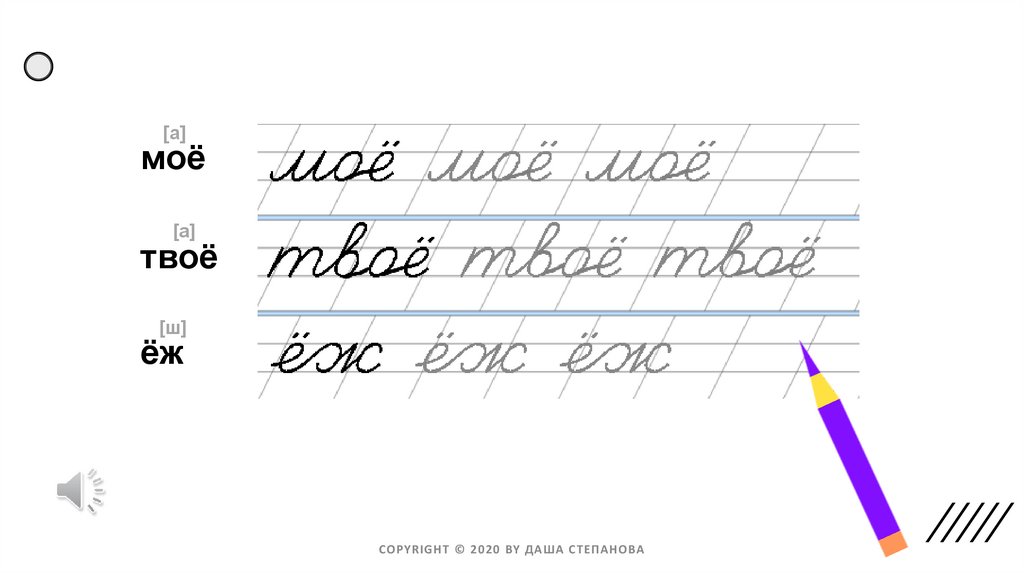 [а]
моё моё моё моё
[а]
твоё твоё твоё твоё
[ш]
ёж ёж ёж ёж
COPYRIGHT © 2020 BY ДАША СТЕПАНОВА